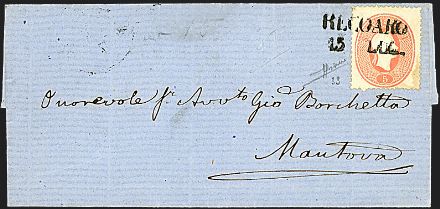 RECOARO
15 LUG.
5
Onorevole Sr. Avvto Gio Borchetta
Mantova